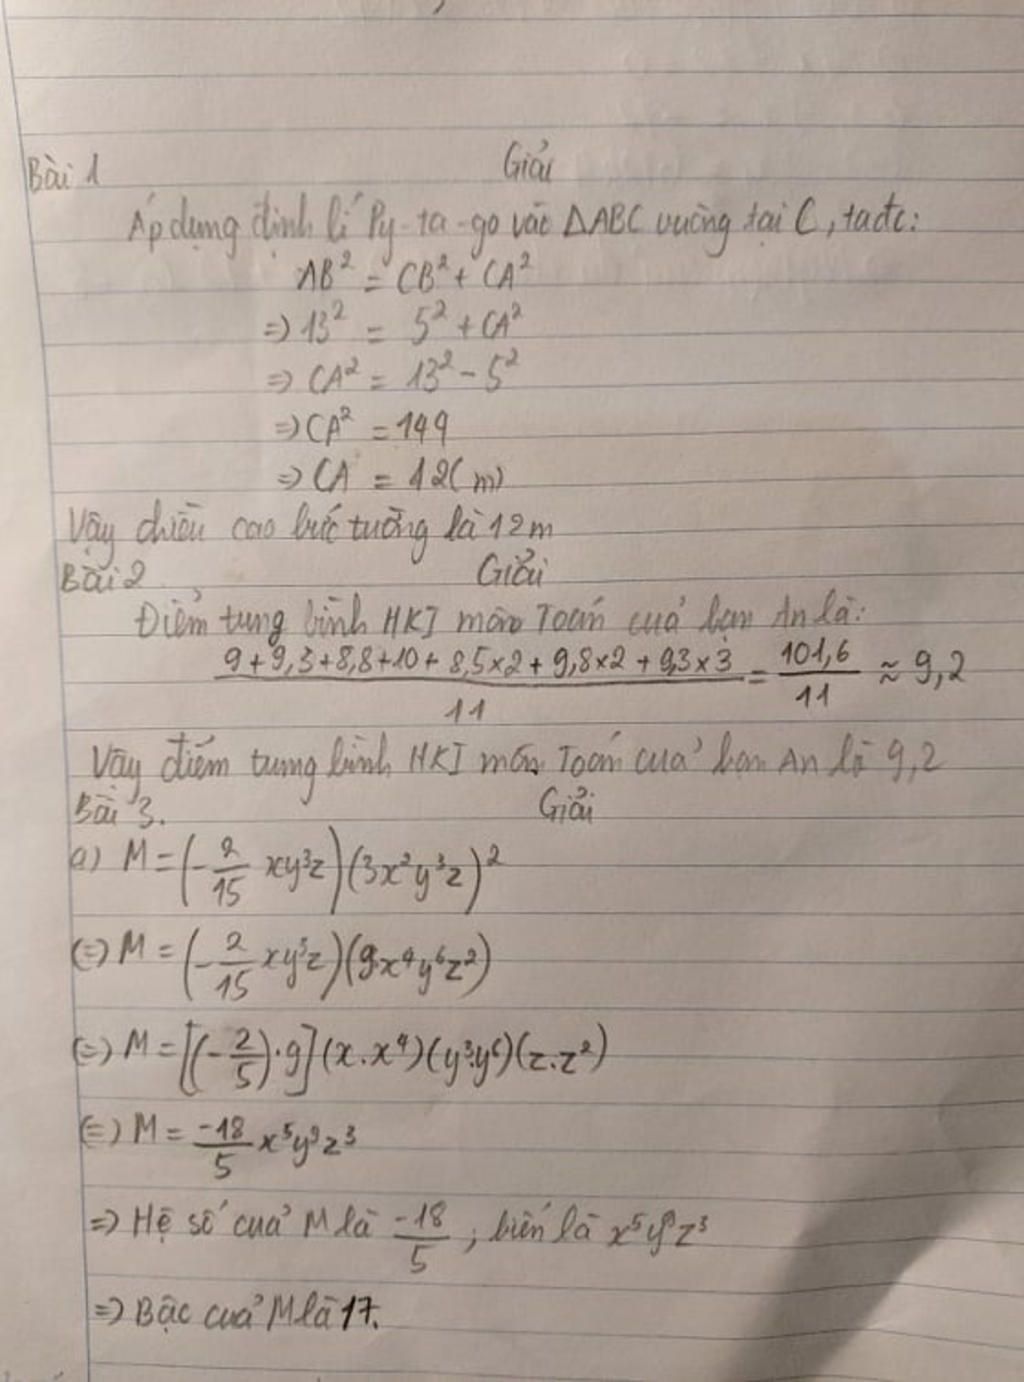 Bài 1 Giải
Áp dụng định lí Py-ta-go vào ΔABC vuông tại C, ta đc:
AB² = CB² + CA²
=> 13² = 5² + CA²
=> CA² = 13² - 5²
=> CA² = 144
=> CA = 12(m)
Vậy chiều cao bức tường là 12m
Bài 2 Giải
Điểm tung bình HKI môn Toán cuả bạn An là:
(9 + 9,3 + 8,8 + 10 + 8,5x2 + 9,8x2 + 9,3x3)/11 = 101,6/11 ≈ 9,2
Vậy điểm tung bình HKI môn Toán cuả bạn An là 9,2
Bài 3. Giải
a) M = (-2/15 xy³z)(3x²y³z)²
(=) M = (-2/15 xy³z)(9x⁴y⁶z²)
(=) M = [(-2/5).9](x.x⁴)(y³.y⁶)(z.z²)
(=) M = -18/5 x⁵y⁹z³
=> Hệ số cuả M là -18/5 ; biến là x⁵y⁹z³
=> Bậc cuả M là 17.